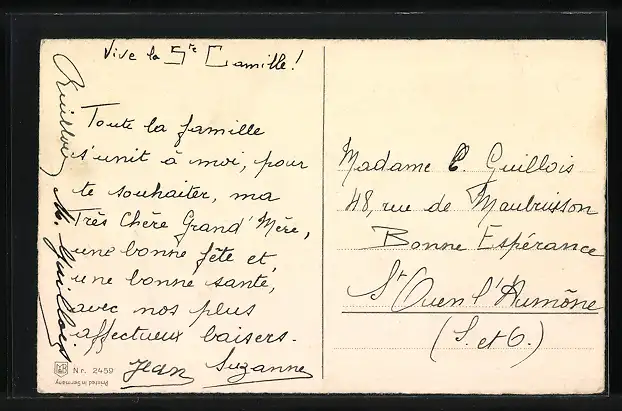 Vive la Ste Camille!
Toute la famille
s'unit à moi, pour
te souhaiter, ma
Très Chère Grand'Mère,
une bonne fête et
une bonne santé,
avec nos plus
affectueux baisers.
Jean Suzanne
M. Guillois
Madame C. Guillois
48, rue de Maubuisson
Bonne Espérance
St Ouen l'Aumône
(S. et O.)
Nr. 2459
Printed in Germany